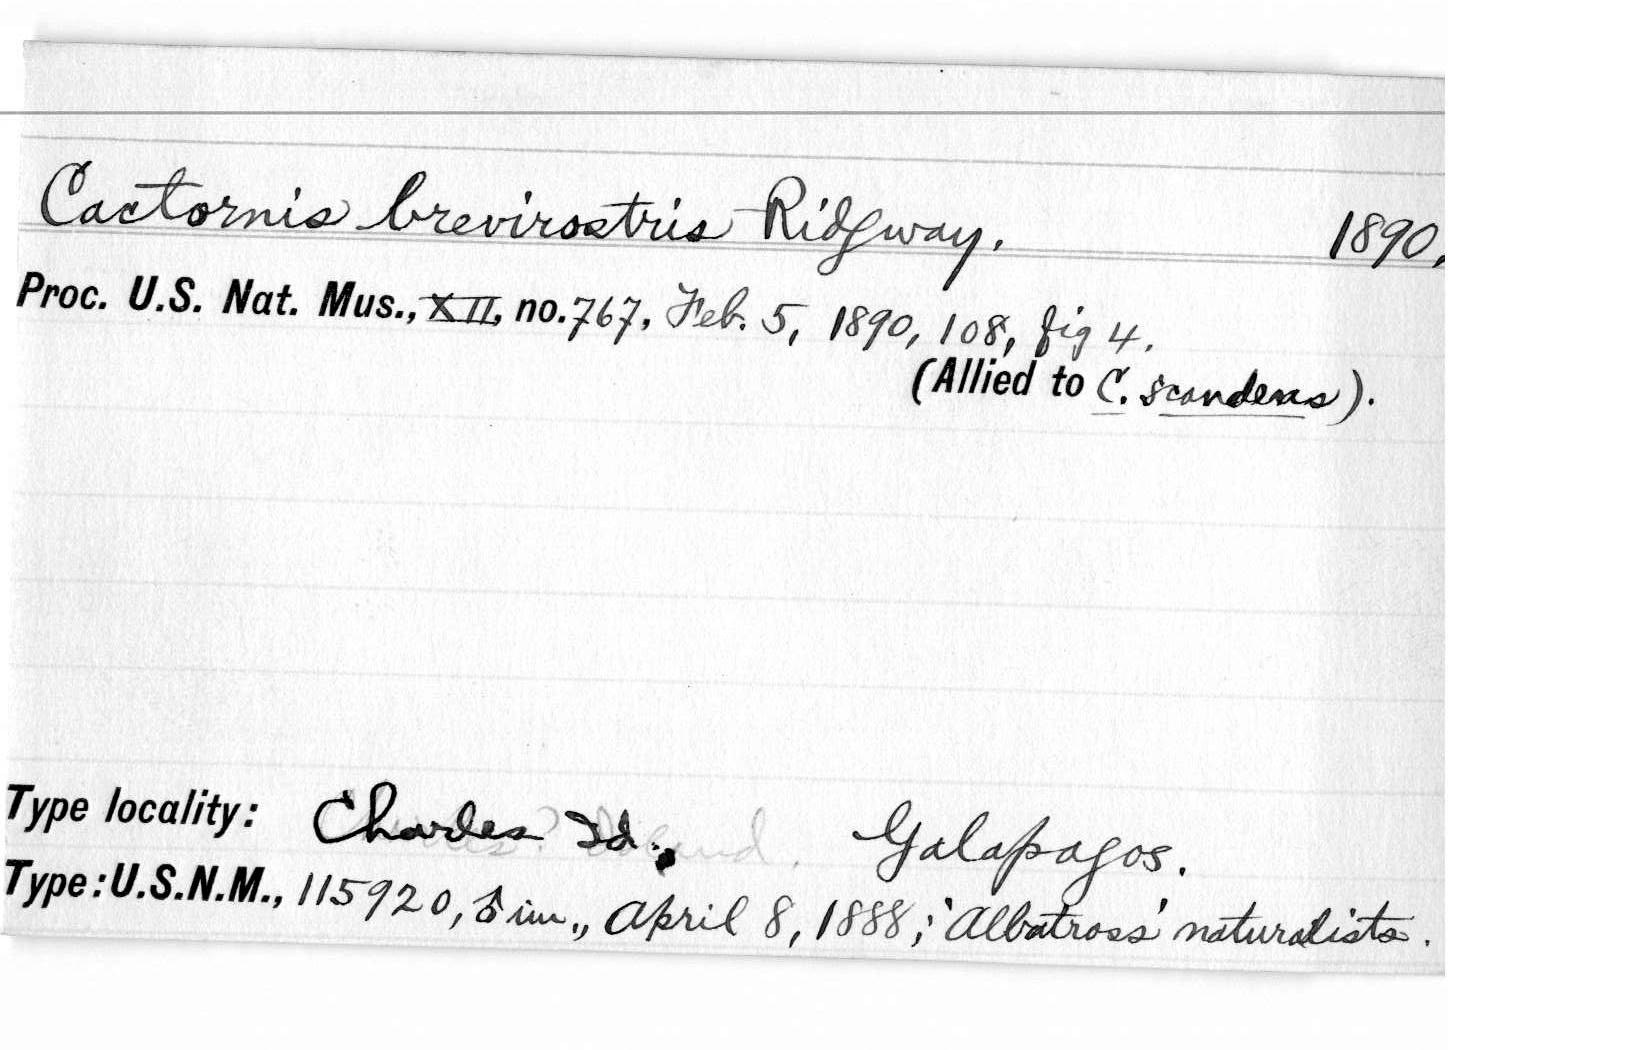 Cactornis brevirostris Ridgway. 1890.
Proc. U.S. Nat. Mus., XII, no. 767, Feb. 5, 1890, 108, fig 4.
(Allied to C. scandens).
Type locality: Charles Id., Galapagos.
Type: U.S.N.M., 115920, ♂ im., April 8, 1888; 'Albatross' naturalists.